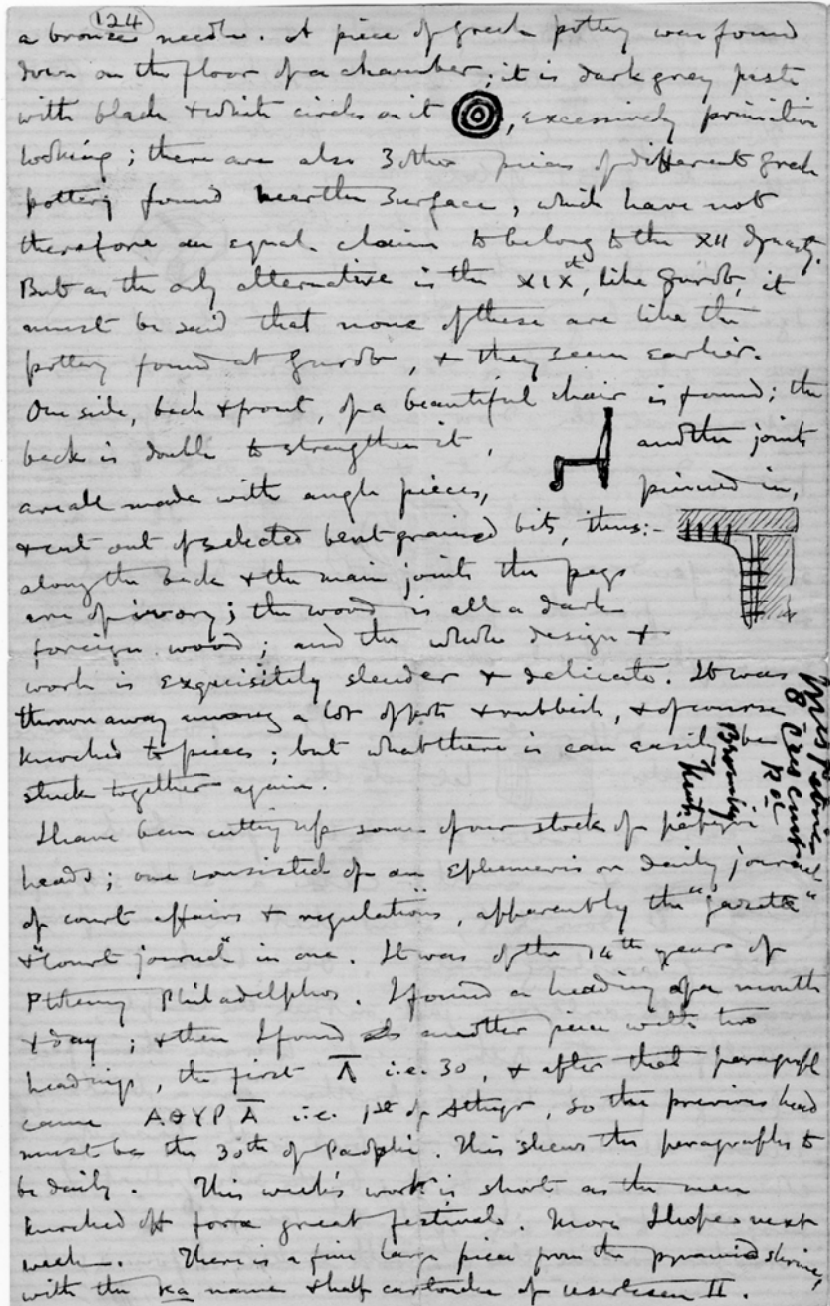 124
a bronze needle. A piece of greek pottery was found
down on the floor of a chamber; it is dark grey paste
with black & white circles on it , excessively primitive
looking; there are also 3 other pieces of different greek
pottery found near the surface, which have not
therefore an equal claim to belong to the XII dynasty.
But as the only alternative is the XIXth, like Gurob, it
must be said that none of these are like the
pottery found at Gurob, & they seem earlier.
One side, back & front, of a beautiful chair is found; the
back is double to strengthen it, and the joints
are all made with angle pieces, pinned in,
& cut out of selected bent grained bits, thus:-
along the back & the main joints the pegs
are of ivory; the wood is all a dark
foreign wood; and the whole design &
work is exquisitely slender & delicate. It was
thrown away among a lot of pots & rubbish, & of course
knocked to pieces; but what there is can easily be
stuck together again.
Mrs Petrie
8 Crescent
Rd
Bromley
Kent
I have been cutting up some of our stock of papyri
heads; one consisted of an Ephemeris or daily journal
of court affairs & regulations, apparently the "gazette"
& "Court journal" in one. It was of the 14th year of
Ptolemy Philadelphos. I found a heading of a month
& day; & then I found another piece with two
headings, the first Λ̅ i.e. 30, & after that paragraph
came ΑΘΥΡ Α̅ i.e. 1st of Athyr, so the previous head
must be the 30th of Paophi. This shews the paragraphs to
be daily. This week's work is short as the men
knocked off for a great festival. More I hope next
week. There is a fine large piece from the pyramid shrine,
with the ka name & half cartouche of Usertesen II.